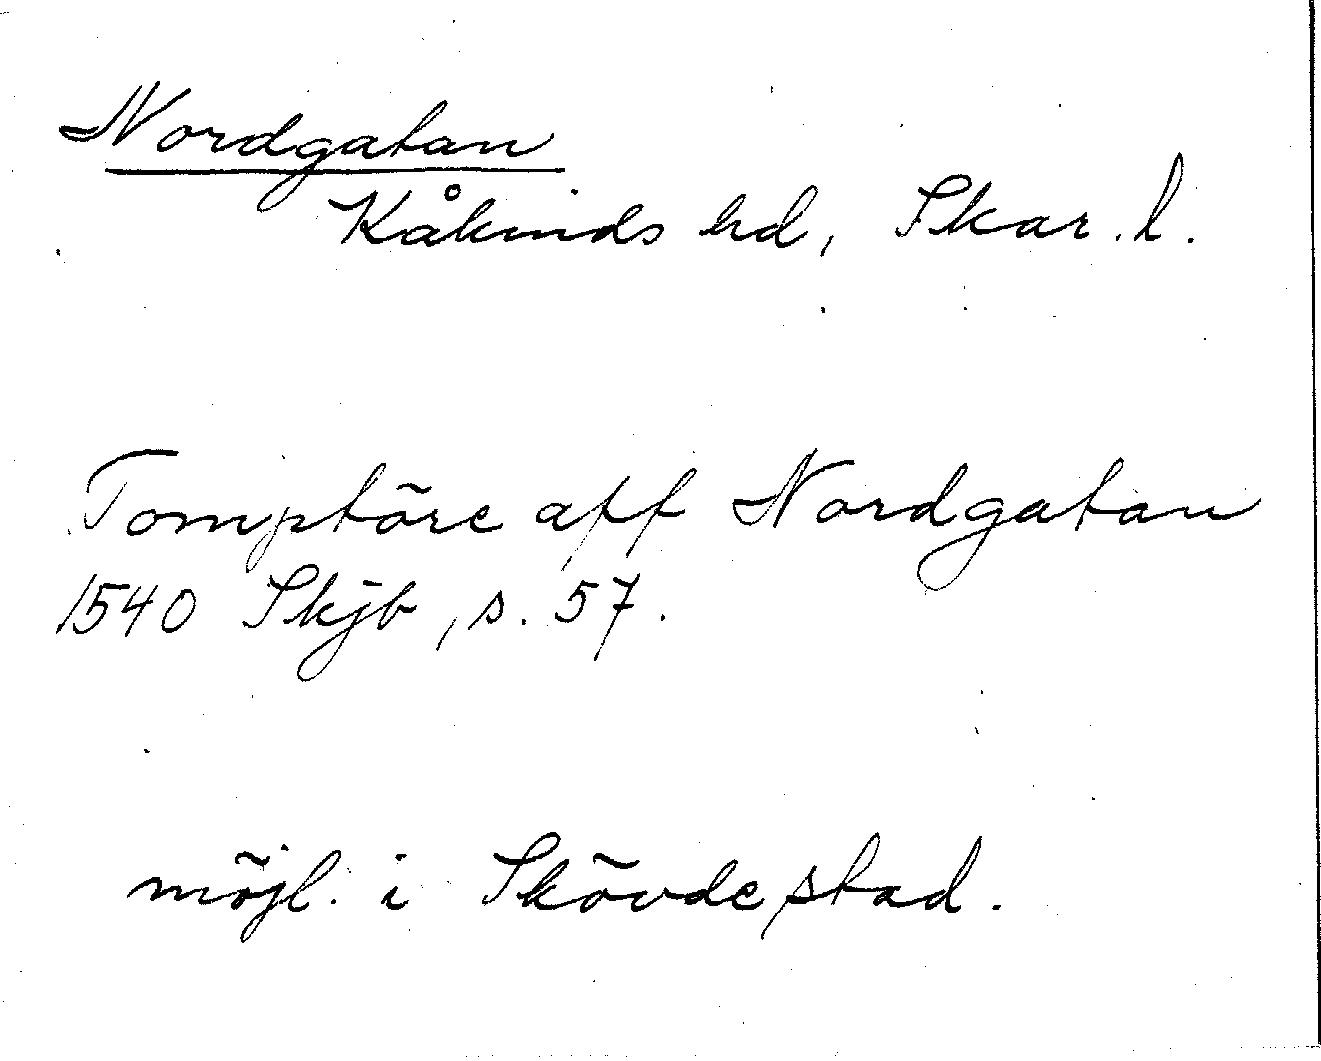 Nordgatan
Kåkinds hd, Skar. l.
Tomptöre aff Nordgatan
1540 Skjb, s. 57.
möjl. i Skövde stad.